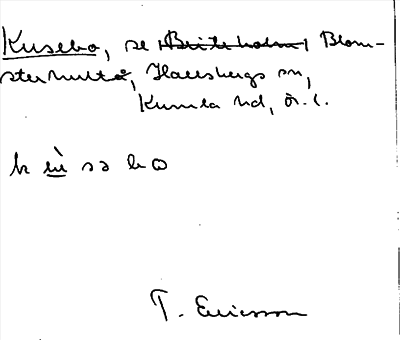 Kusebo, se Briteholm, Blom-
sterhult, Hallsbergs sn,
Kumla hd, Ör. l.
k ù sə bo
T. Ericsson